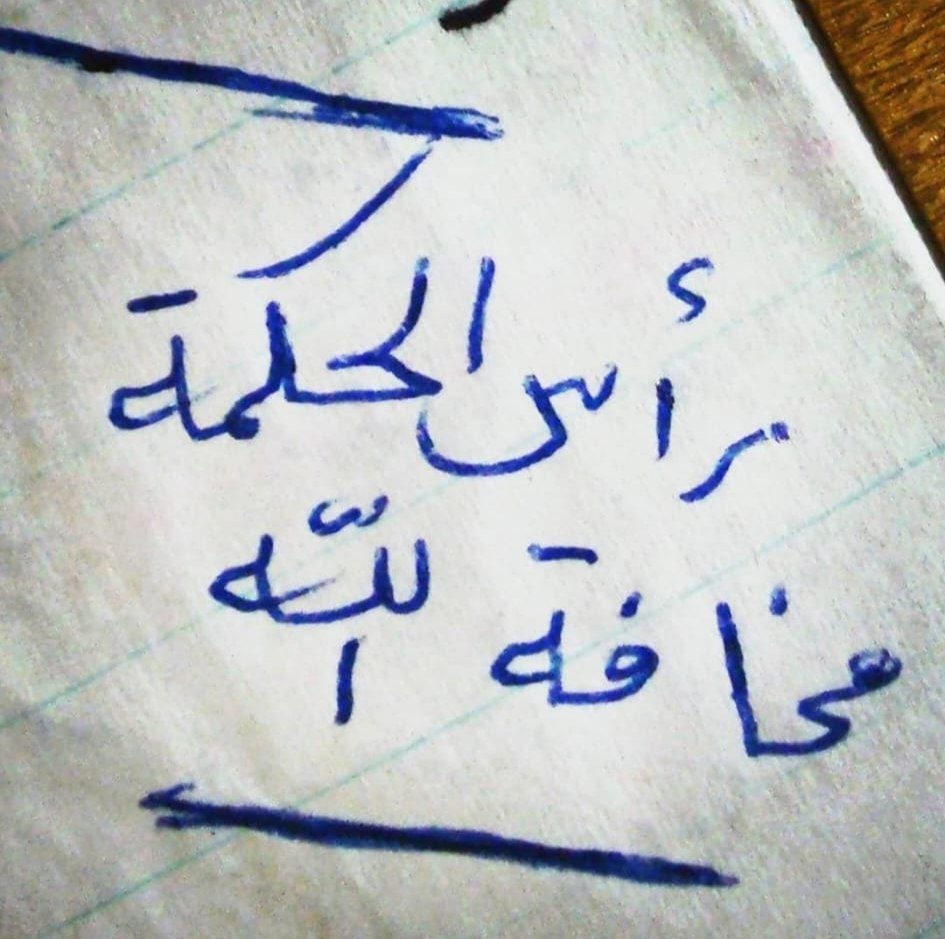 رأس الحكمة
مخافة اللّه